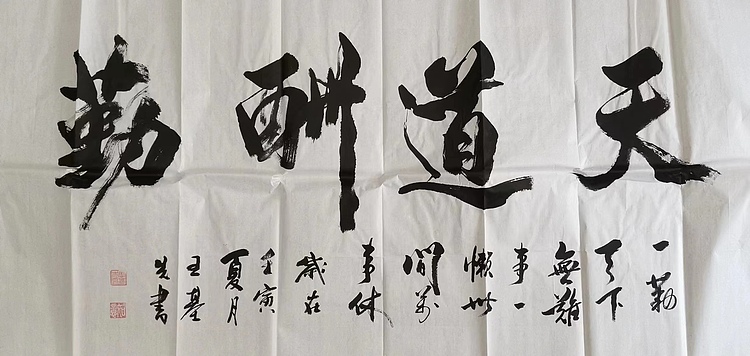 天道酬勤
一勤
天下
無難
事一
懶世
間萬
事休
歲在
壬寅
夏月
王基
先書